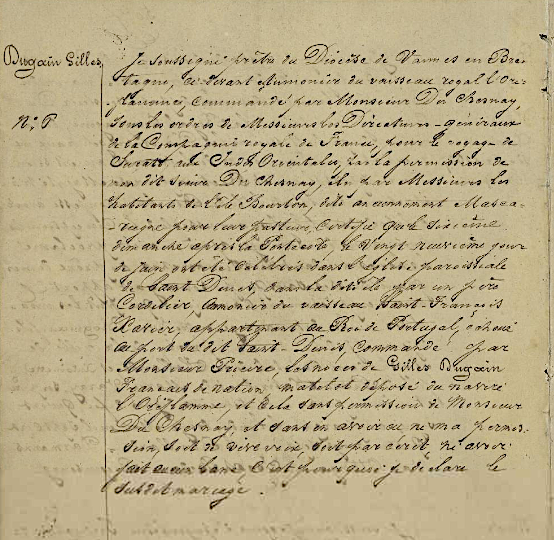 Dugain Gilles,
N: P
Je soussigné prêtre du Diocèse de Vannes en Bre-
-tagne, ci-devant Aumonier du vaisseau royal l'Ori-
-flamme, commandé par Monsieur Du Chesnay,
sous les ordres de Messieurs les Directeurs-généraux
de la Compagnie royale de France, pour le voyage de
Surate aux Indes Orientales, la permission de
mon dit sieur Du Chesnay, élu par Messieurs les
habitants de l'Ile Bourbon, dite anciennement Masca-
-reigne pour leur pasteur, certifie que le sixième
dimanche après la Pentecôte, le Vingt neuvième jour
de juin ont été célébrées dans l'Eglise paroissiale
de Saint Denis, dans la dite île par un père
Cordelier, aumonier du vaisseau Saint-François
Xavier, appartenant au Roi de Portugal, échoué
au port du dit Saint-Denis, commandé par
Monsieur les noces de Gilles Dugain
Français de nation matelot du navire
l'Oriflamme, et cela sans permission de Monsieur
Du Chesnay, et sans en avoir eu ne ma permis-
-sion, soit de vive voix, soit par écrit, ne avoir
fait aucun banc, C'est pourquoi je déclare le
susdit mariage.